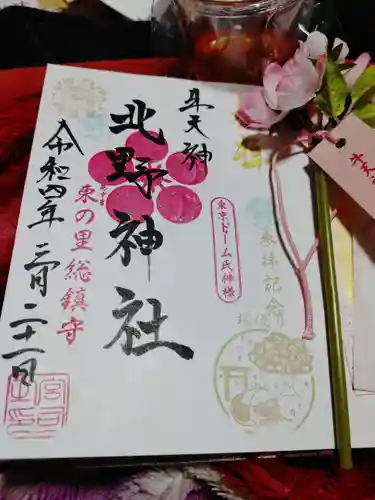 牛天神
北野神社
東京ドーム氏神様
参拝記念
東の里総鎮守
あずま
令和四年三月二十二日
牛天